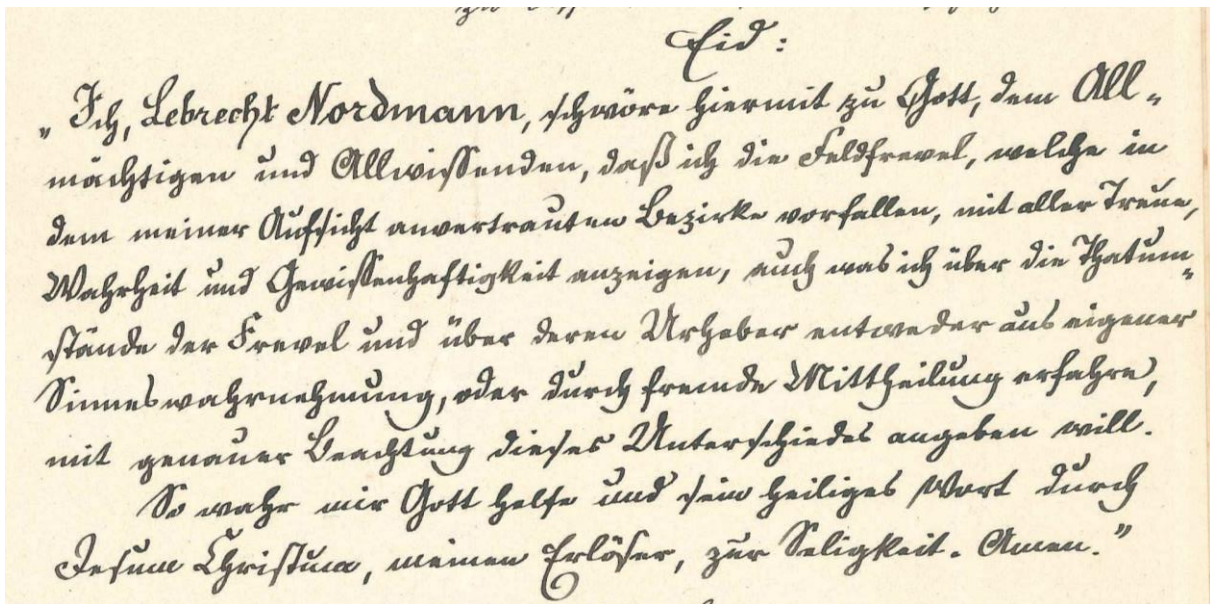 Eid:
„Ich, Lebrecht Nordmann, schwöre hiermit zu Gott, dem All-
mächtigen und Allwissenden, daß ich die Feldfrevel, welche in
dem meiner Aufsicht anvertrauten Bezirke vorfallen, mit aller Treue,
Wahrheit und Gewissenhaftigkeit anzeigen, auch was ich über die Thatum-
stände der Frevel und über deren Urheber entweder aus eigener
Sinneswahrnehmung, oder durch fremde Mittheilung erfahre,
mit genauer Beachtung dieses Unterschiedes angeben will.
So wahr mir Gott helfe und sein heiliges Wort durch
Jesum Christum, meinen Erlöser, zur Seligkeit. Amen.”